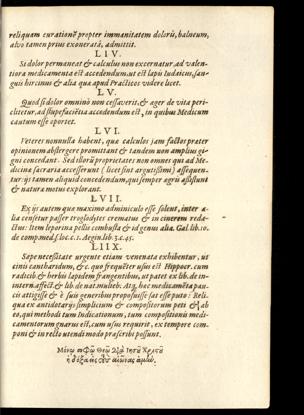 reliquam curationē propter immanitatem doloris, balneum,
alvo tamen prius exonerata, admittit.
LIV.
Si dolor permaneat & calculus non excernatur, ad valen-
tiora medicamenta est accedendum, ut est lapis Iudaicus, san-
guis hircinus & alia quæ apud Practicos videre licet.
LV.
Quod si dolor omninò non cessaverit, & æger de vita peri-
clitetur, ad stupefacientia accedendum est, in quibus Medicum
cautum esse oportet.
LVI.
Veteres nonnulla habent, quæ calculos jam factos præter
opinionem abstergere promittant & tandem non amplius gi-
gni concedant. Sed illorū proprietates non omnes qui ad Me-
dicinæ sacraria accesserunt (licet sint argutissimi) assequen-
tur: ijs tamen aliquid concedendum, qui semper ægris assistunt
& naturæ motus explorant.
LVII.
Ex ijs autem quæ maximo adminiculo esse solent, inter a-
lia censetur passer troglodytes crematus & in cinerem reda-
ctus: Item leporina pellis combusta & id genus alia. Gal. lib. 10.
de comp. med. s. loc. c. 1. Aegin. lib. 3. c. 45.
LIIX.
Sæpe necessitate urgente etiam venenata exhibentur, ut
cinis cantharidum, &c. quo frequēter usus est Hippocr. cum
radicib. & herbis lapidem frangentibus, ut patet ex lib. de in-
tern. affect. & lib. de nat. mulieb. Atq, hæc medicamēta pau-
cis attigisse & è suis generibus proposuisse sat esse puto: Reli-
qua ex antidotarijs simplicium & compositorum peti & ab
eo, qui methodi tum Indicationum, tum compositionis medi-
camentorum gnarus est, cum usus requirit, ex tempore com-
poni & in recto utendi modo præscribi possunt.
Μόνῳ σοφῷ Θεῷ διὰ Ἰησοῦ Χριστοῦ
ἡ δόξα εἰς τοὺς αἰῶνας ἀμήν.